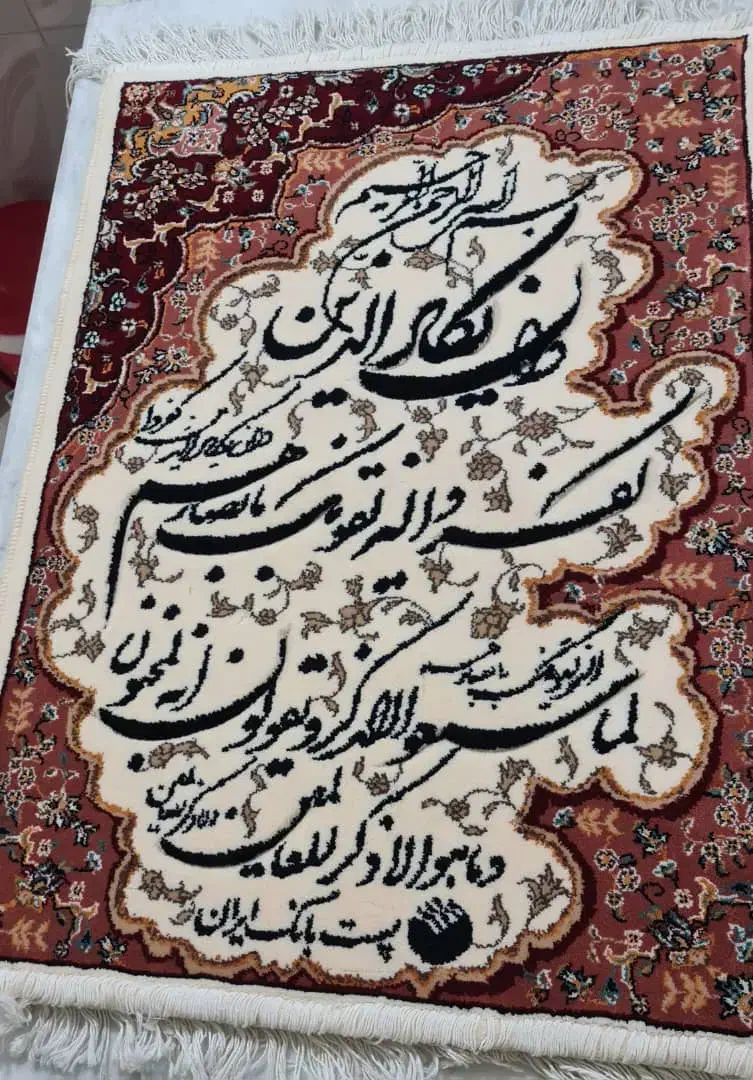 بسم الله الرحمن الرحیم
وان یکاد الذین
کفروا لیزلقونک بابصارهم
لما سمعوا الذکر و یقولون انه لمجنون
وما هو الا ذکر للعالمین
پست بانک ایران